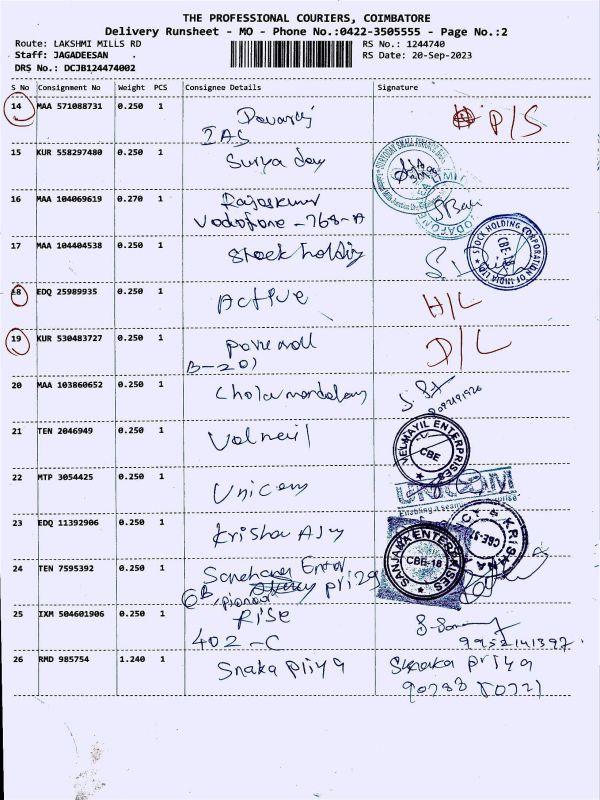 THE PROFESSIONAL COURIERS, COIMBATORE
Delivery Runsheet - MO - Phone No.:0422-3505555 - Page No.:2
Route: LAKSHMI MILLS RD
RS No.: 1244740
Staff: JAGADEESAN
RS Date: 20-Sep-2023
DRS No.: DCJB124474002
S No Consignment No Weight PCS Consignee Details Signature
14 MAA 571088731 0.250 1 P/S
IAS
15 KUR 558297480 0.250 1 Surya day
16 MAA 104069619 0.270 1 Rajaskumar
Vodofone - 768-A
17 MAA 104404538 0.250 1 Stock holding
STOCK HOLDING CORPORATION OF INDIA LTD
CBE-18
18 EDQ 25989935 0.250 1 Active H/L
19 KUR 530483727 0.250 1 D/L
B-201
20 MAA 103860652 0.250 1 Cholamandalam
21 TEN 2046949 0.250 1
VELMAYIL ENTERPRISES
CBE
22 MTP 3054425 0.250 1 Unicom
UNICOM
23 EDQ 11392906 0.250 1 Krisha
24 TEN 7595392 0.250 1 priya
6B
SANJANA ENTERPRISES
CBE-18
25 IXM 504601906 0.250 1 Rise
402-C
9952141397
26 RMD 985754 1.240 1 Snaka priya Snaka priya